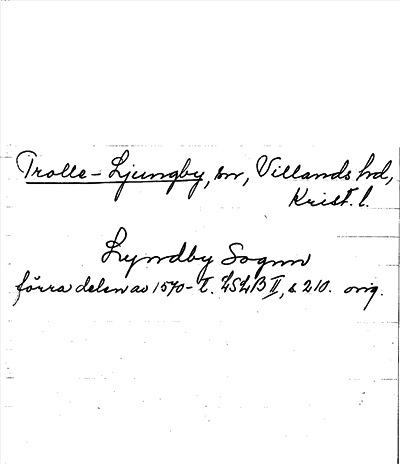 Trolle-Ljungby, sn, Villands hd,
Krist. l.
Lyndby Sognn
förra delen av 1570-t. LSLB II, s 210. orig.